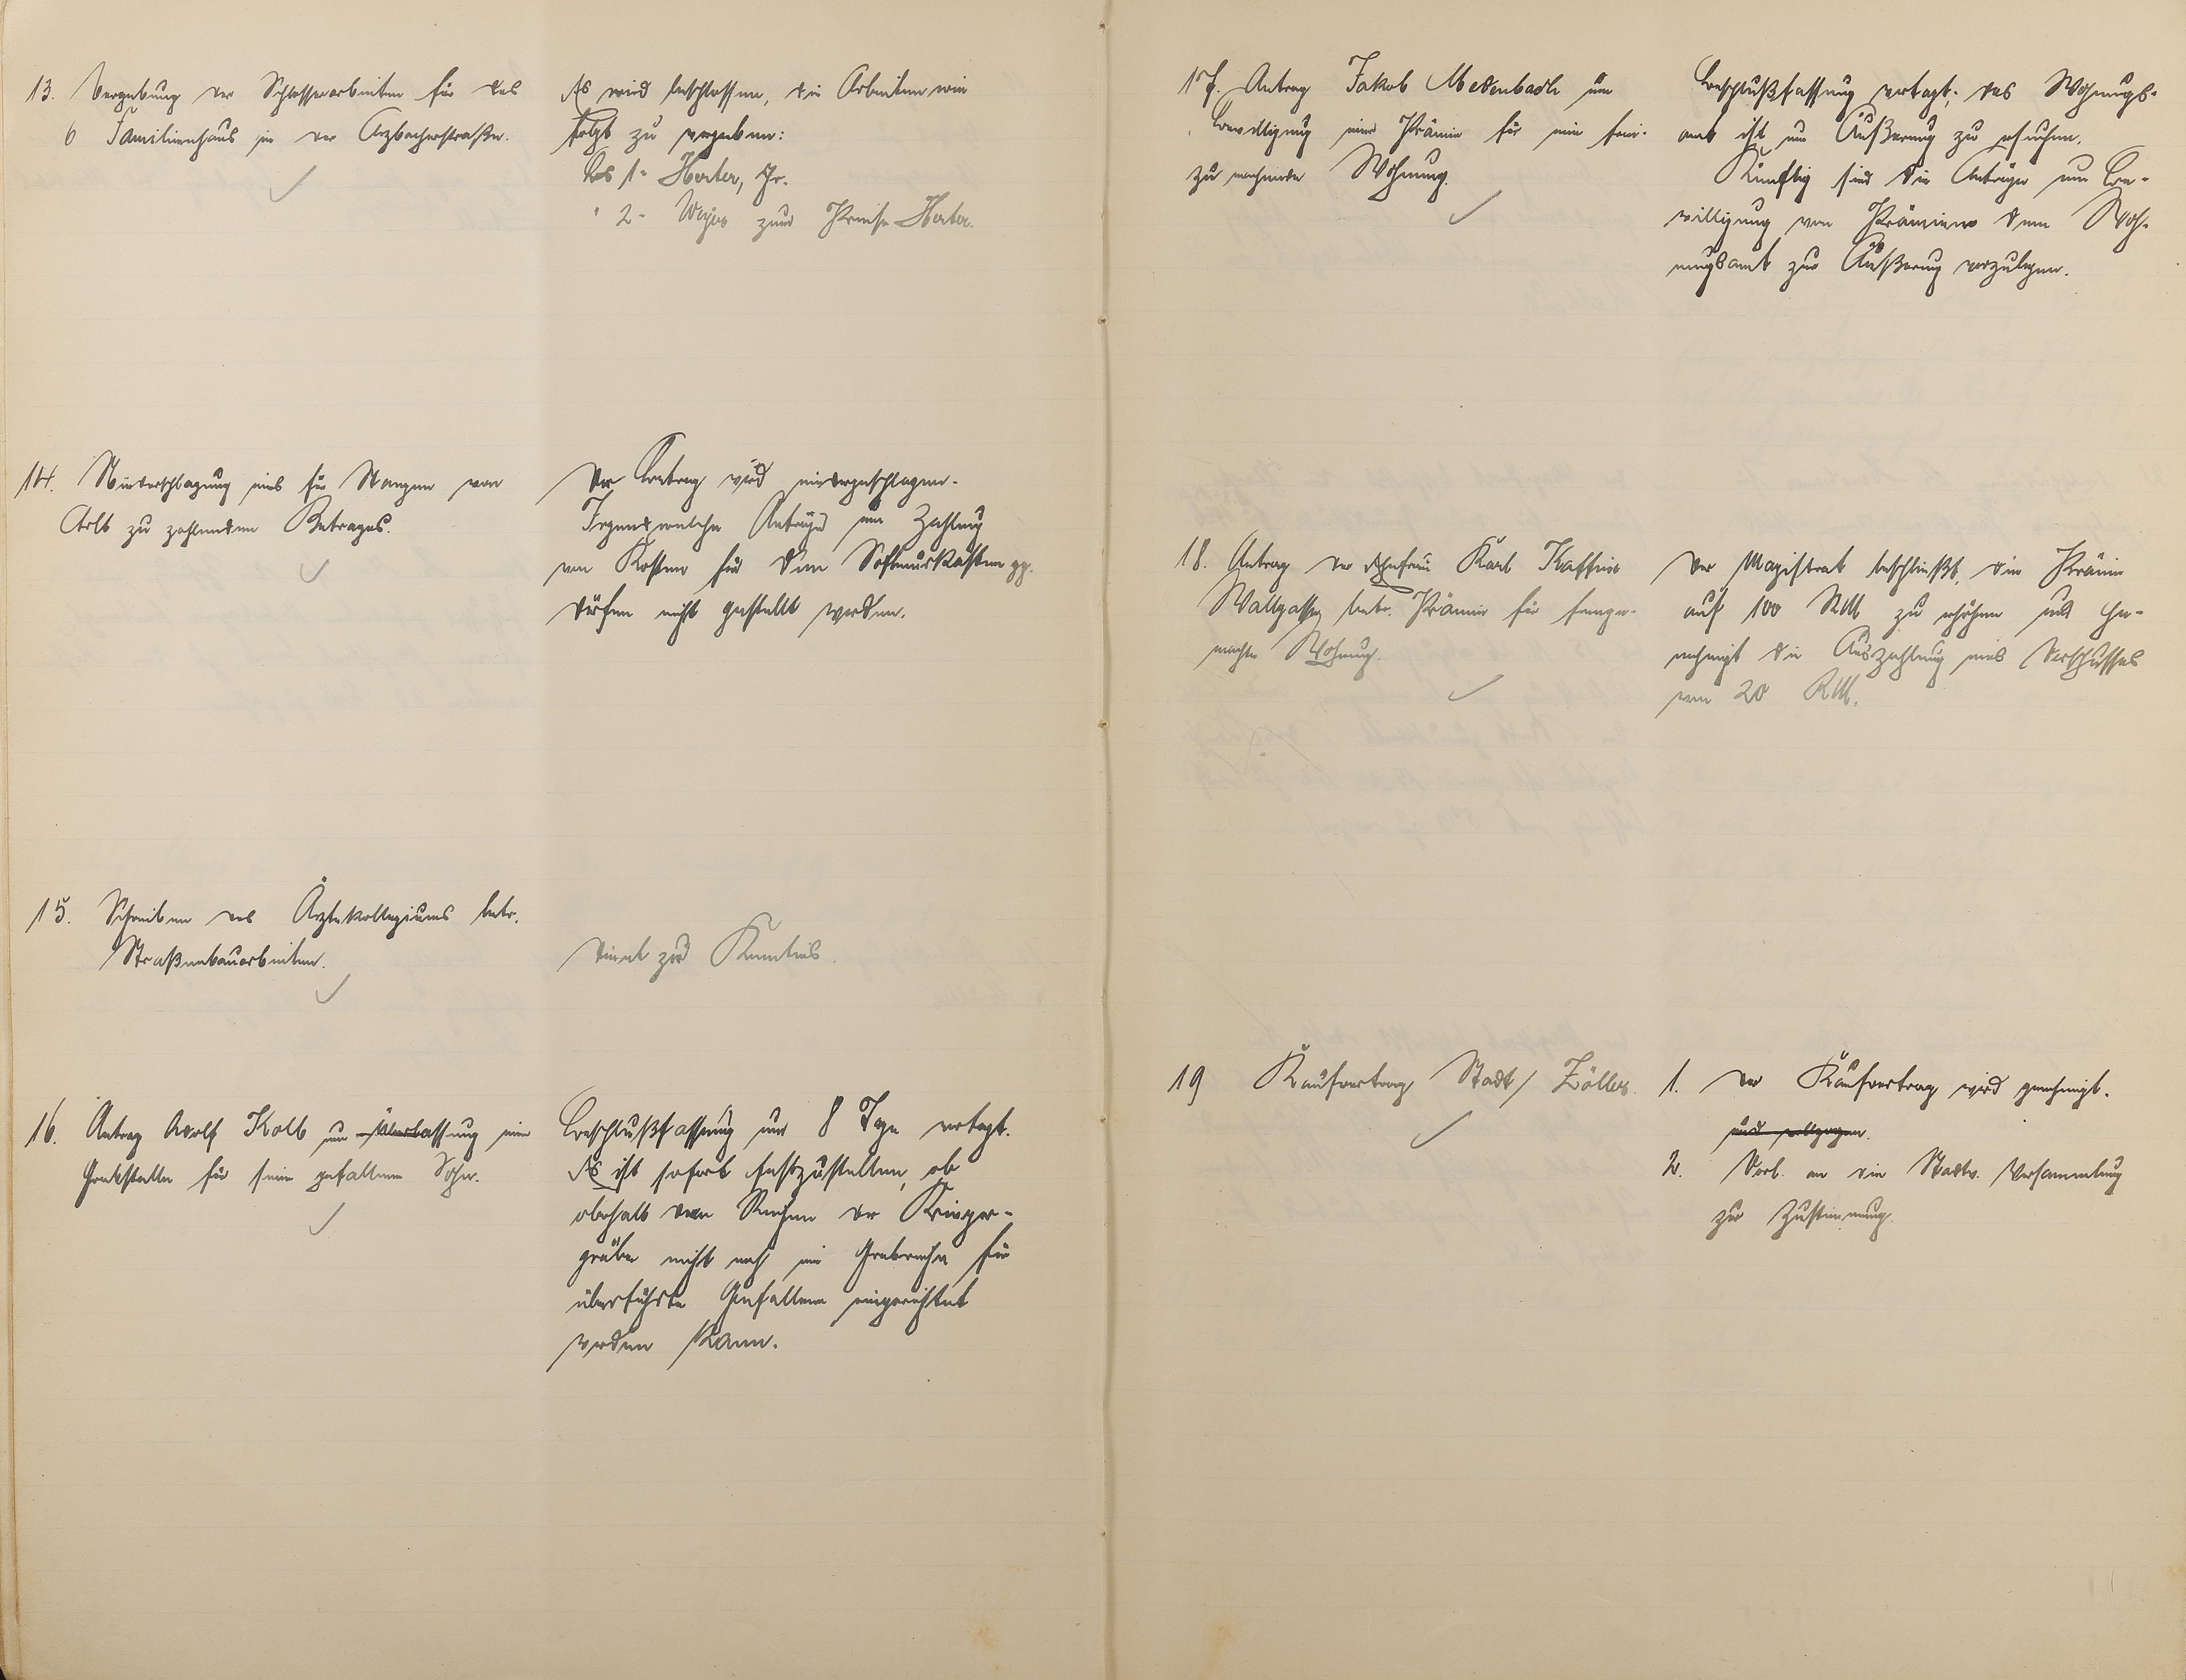 13. Vergebung der Schlosserarbeiten für das
6 Familienhaus in der Arzbacherstraße.
Es wird beschlossen, die Arbeiten wie
folgt zu vergeben:
Los 1 - Herter, Gr.
" 2 - zum Preise Herter.
14. Niederschlagung eines für Stangen von
zu zahlenden Betrages.
Der Betrag wird niedergeschlagen.
Irgendwelche Anträge um Zahlung
von Kosten für den gg.
dürfen nicht gestellt werden.
15. Schreiben des Ärztekollegiums betr.
Straßenbauarbeiten.
dient zur Kenntnis.
16. Antrag Adolf Kolb um Überlassung einer
Grabstelle für seinen gefallenen Sohn.
Beschlußfassung um 8 Tage vertagt.
Es ist sofort festzustellen, ob
oberhalb der Reihen der Krieger-
gräber nicht noch eine Grabreihe für
überführte Gefallene eingerichtet
werden kann.
17. Antrag Jakob Medenbach um
Bewilligung einer Prämie für eine frei-
zu machende Wohnung.
Beschlußfassung vertagt; das Wohnungs-
amt ist um Äußerung zu ersuchen.
Künftig sind die Anträge um Be-
willigung von Prämien dem Woh-
nungsamt zur Äußerung vorzulegen.
18. Antrag der Ehefrau Karl
Wallgasse betr. Prämie für freige-
machte Wohnung.
Der Magistrat beschließt, die Prämie
auf 100 RM zu erhöhen und ge-
nehmigt die Auszahlung eines Vorschusses
von 20 RM.
19 Kaufvertrag Stadt / Zöller.
1. Der Kaufvertrag wird genehmigt.
und vollzogen.
2. Vorl. an die Stadtv. Versammlung
zur Zustimmung.